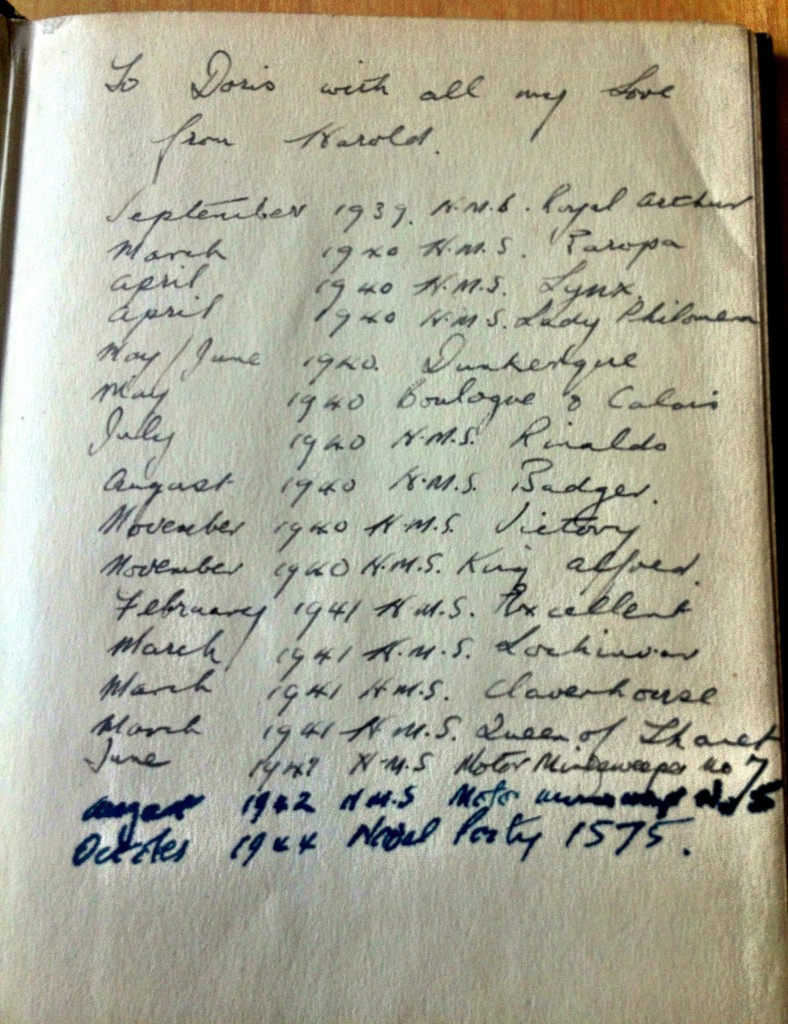 To Doris with all my Love
from Harold.
September 1939. H.M.S. Royal Arthur
March 1940 H.M.S. Europa
April 1940 H.M.S. Lynx.
April 1940 H.M.S. Lady Philomena
May/June 1940. Dunkerque
May 1940 Boulogne & Calais
July 1940 H.M.S. Rinaldo
August 1940 H.M.S. Badger.
November 1940 H.M.S. Victory
November 1940 H.M.S. King Alfred.
February 1941 H.M.S. Excellent
March 1941 H.M.S. Lochinvar
March 1941 H.M.S. Claverhouse
March 1941 H.M.S. Queen of Thanet
June H.M.S Motor Minesweeper No 7
August 1942 H.M.S Motor No 5
October 1944 Naval Party 1575.